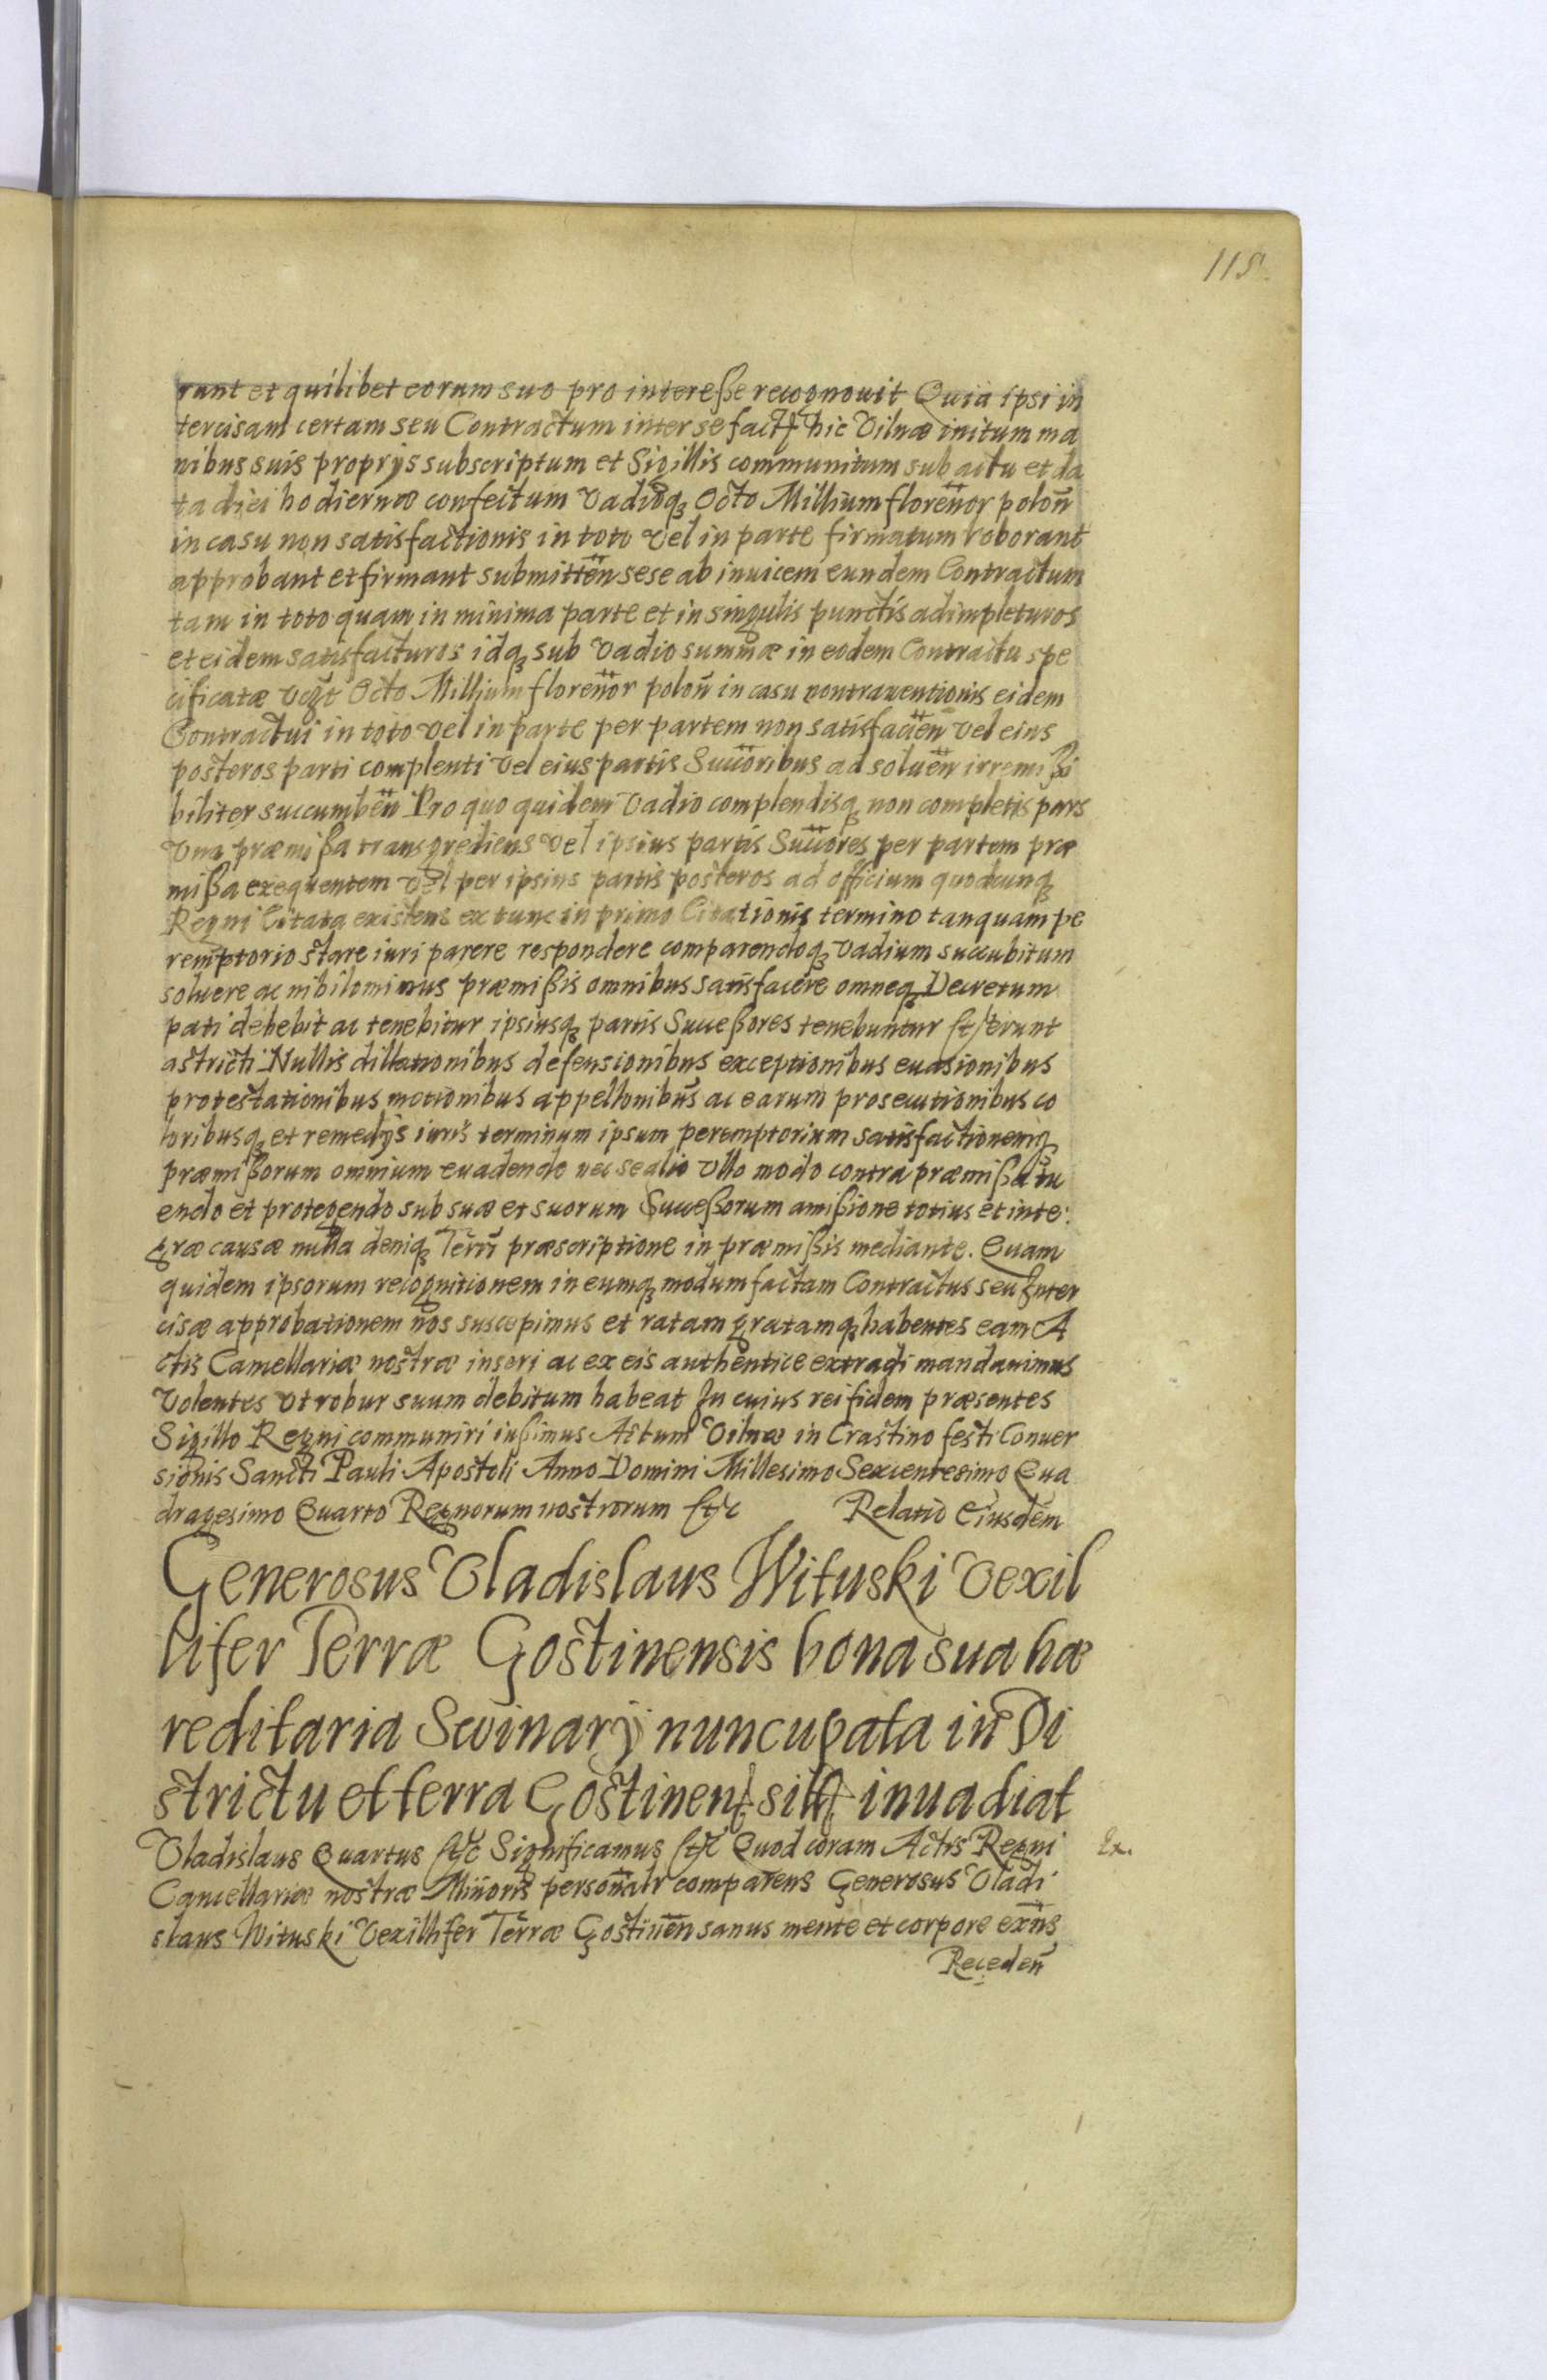 115
rant et quilibet eorum suo pro interesse recognovit Quia ipsi in
tercisam certam seu Contractum inter se fact hic Vilnæ initum ma
nibus suis proprijs subscriptum et Sigillis communitum sub actu et da
ta diei hodiernæ confectum Vadioq₃ Octo Millium floreñor poloñ
in casu non satisfactionis in toto vel in parte firmatum roborant
approbant et firmant submitteñ sese ab invicem eundem Contractum
tam in toto quam in minima parte et in singulis punctis adimpleturos
et eidem satisfacturos idq₃ sub Vadio summæ in eodem Contractu spe
cificatæ vẽt Octo Millium floreñor poloñ in casu contraventionis eidem
Contractui in toto vel in parte per partem non satisfacieñ vel eius
posteros parti complenti vel eius partis Succoribus ad solueñ irremißi
biliter succumbeñ Pro quo quidem Vadio complendisq₃ non completis pars
Vna præmißa transgrediens vel ipsius partis Succores per partem præ
mißa exequentem vel per ipsius partis posteros ad officium quodcunq₃
Regni Citata existens ex tunc in primo Citationis termino tanquam pe
remptorio stare iuri parere respondere comparendoq₃ vadium succubitum
soluere ac nihilominus præmißis omnibus satisfacere omneq₃ Decretum
pati debebit ac tenebitur ipsiusq₃ partis Succeßores tenebuntur et erunt
astricti Nullis dillationibus defensionibus exceptionibus euasionibus
protestationibus motionibus appellonibus̃ ac earum prosecutionibus co
loribusq₃ et remedijs iuris terminum ipsum peremptorium satisfactionemq₃
præmißorum omnium euadendo nec se alio Vllo modo contra præmißa tu
endo et protegendo sub suæ et suorum Succeßorum amißione totius et inte
græ causæ nulla deniq₃ Terrr̃ præscriptione in præmißis mediante. Quam
quidem ipsorum recognitionem in eumq₃ modum factam Contractus seu Inter
cisæ approbationem nos suscepimus et ratam gratamq₃ habentes eam A
ctis Cancellariæ nostræ inseri ac ex eis authentice extradi mandauimus
Volentes Vt robur suum debitum habeat In cuius rei fidem præsentes
Sigillo Regni communiri iußimus Actum Vilnæ in Crastino festi Conuer
sionis Sancti Pauli Apostoli Anno Domini Millesimo Sexcentesimo Qua
dragesimo Quarto Regnorum nostrorum etc Relatio Eiusdem
Generosus Vladislaus Wituski Vexil
lifer Terræ Gostinensis bona sua hæ
reditaria Swinary nuncupata in Di
strictu et terra Gostinen sitt inuadiat
Vladislaus Quartus etc Significamus etc Quod coram Actis Regni
Ex.
Cancellariæ nostræ Miñoris persoñalr comparens Generosus Vladi
slaus Wituski Vexillifer Terræ Gostineñ sanus mente et corpore exñs
Recedeñ